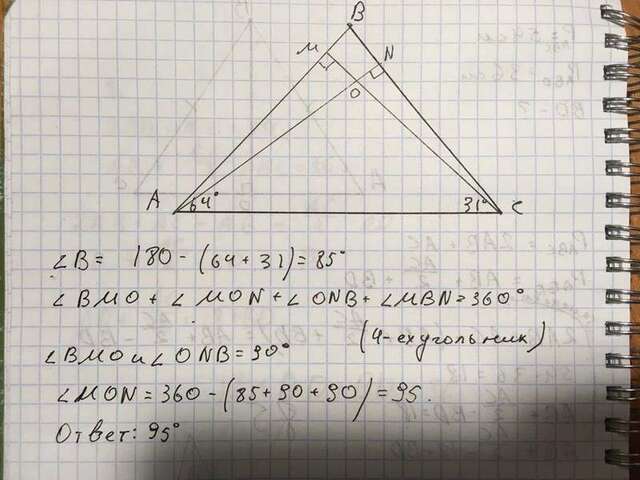 B
M
N
O
A 64° 31° C
∠B = 180 - (64 + 31) = 85°
∠BMO + ∠MON + ∠ONB + ∠MBN = 360°
(4-ехугольник)
∠BMO и ∠ONB = 90°
∠MON = 360 - (85 + 90 + 90) = 95.
Ответ: 95°